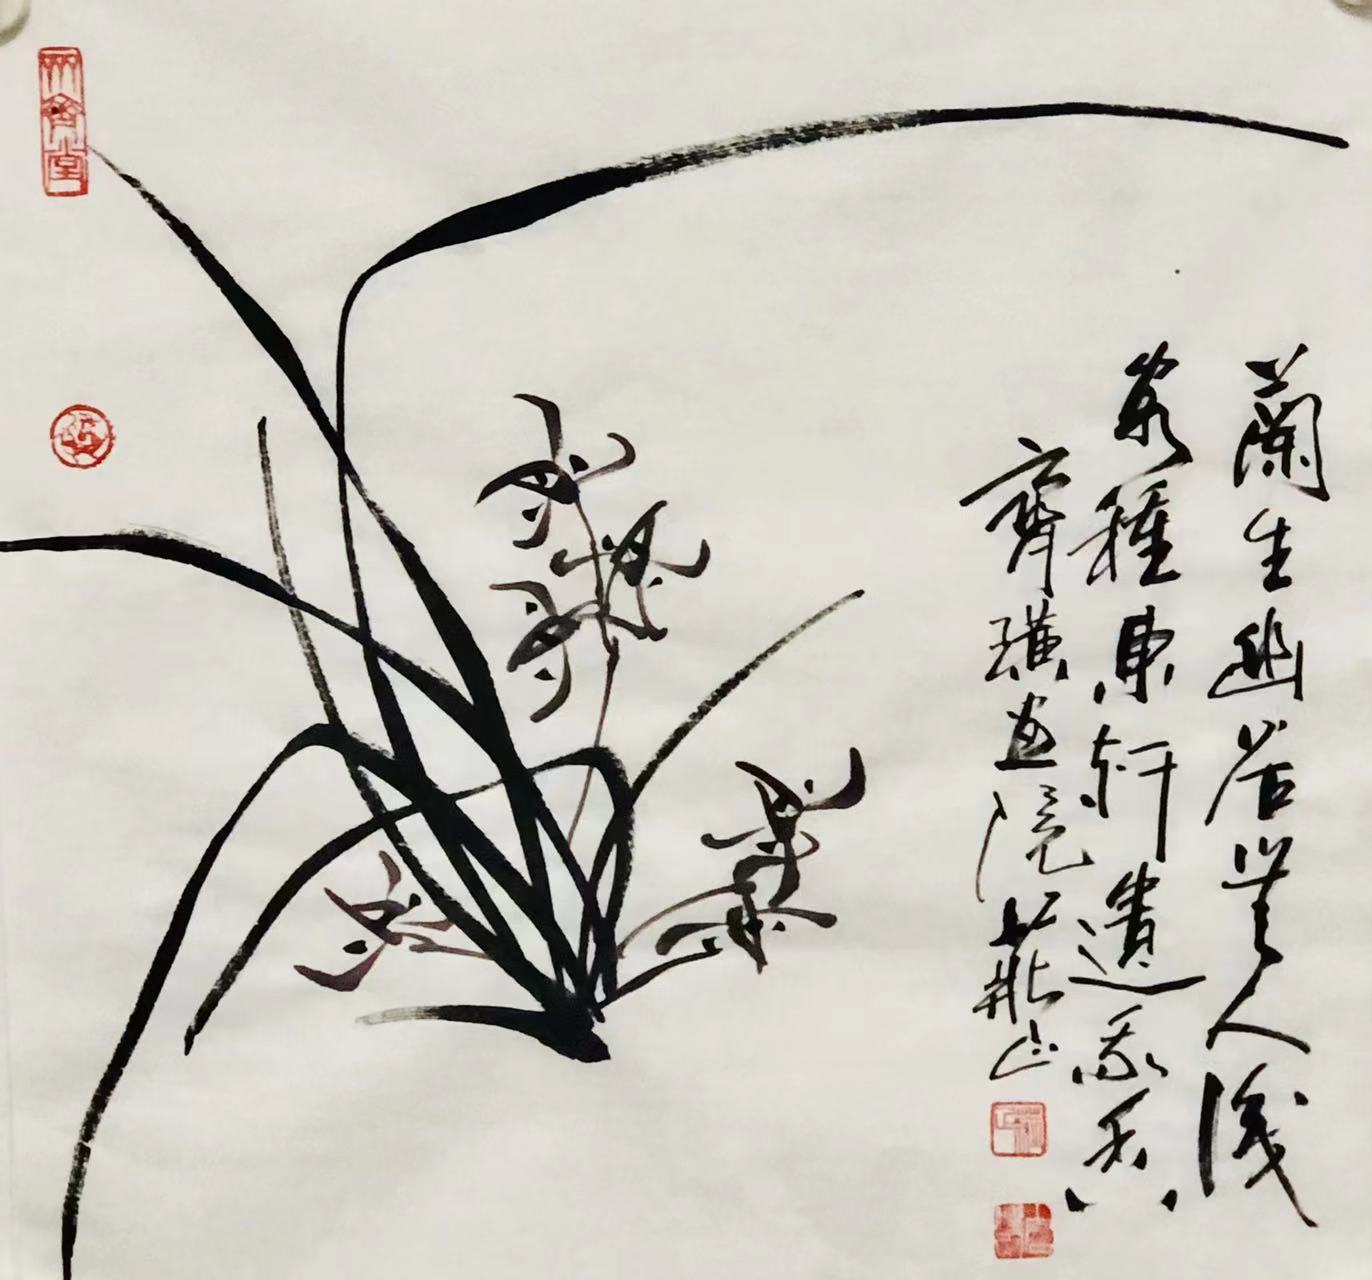 蘭生幽谷無人識
客種東軒遺我香
齊璜畫院莊山